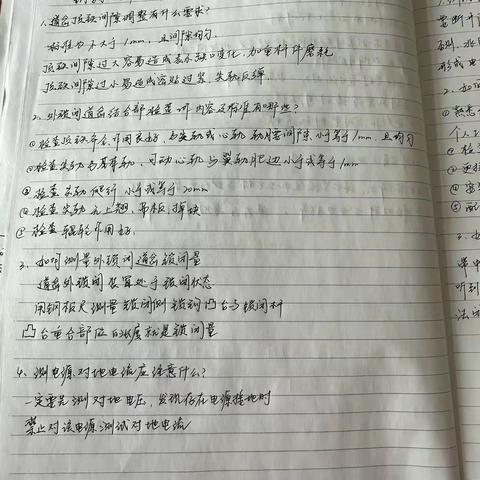 1、道岔顶铁间隙调整有什么要求?
标准为不大于1mm,且间隙均匀.
顶铁间隙过大容易造成表示缺口变化,加重杆件磨耗
顶铁间隙过小易造成密贴过紧,尖轨反弹.
2、外锁闭道岔结合部检查的内容及标准有哪些?
①检查顶铁齐全,作用良好,与尖轨或心轨轨腰间隙小于等于1mm,且均匀
②检查尖轨与基本轨,可动心轨与翼轨肥边小于或等于1mm
③检查尖轨爬行小于或等于20mm
④检查尖轨无上翘,吊板,掉块
⑤检查辊轮作用好.
3、如何测量外锁闭道岔锁闭量
道岔外锁闭装置处于锁闭状态
用钢板尺测量锁闭侧锁钩凸台与锁闭杆
凸台重合部位的长度就是锁闭量
4、测电源对地电流应注意什么?
一定需先测对地电压,发现存在电源接地时
禁止对该电源测试对地电流